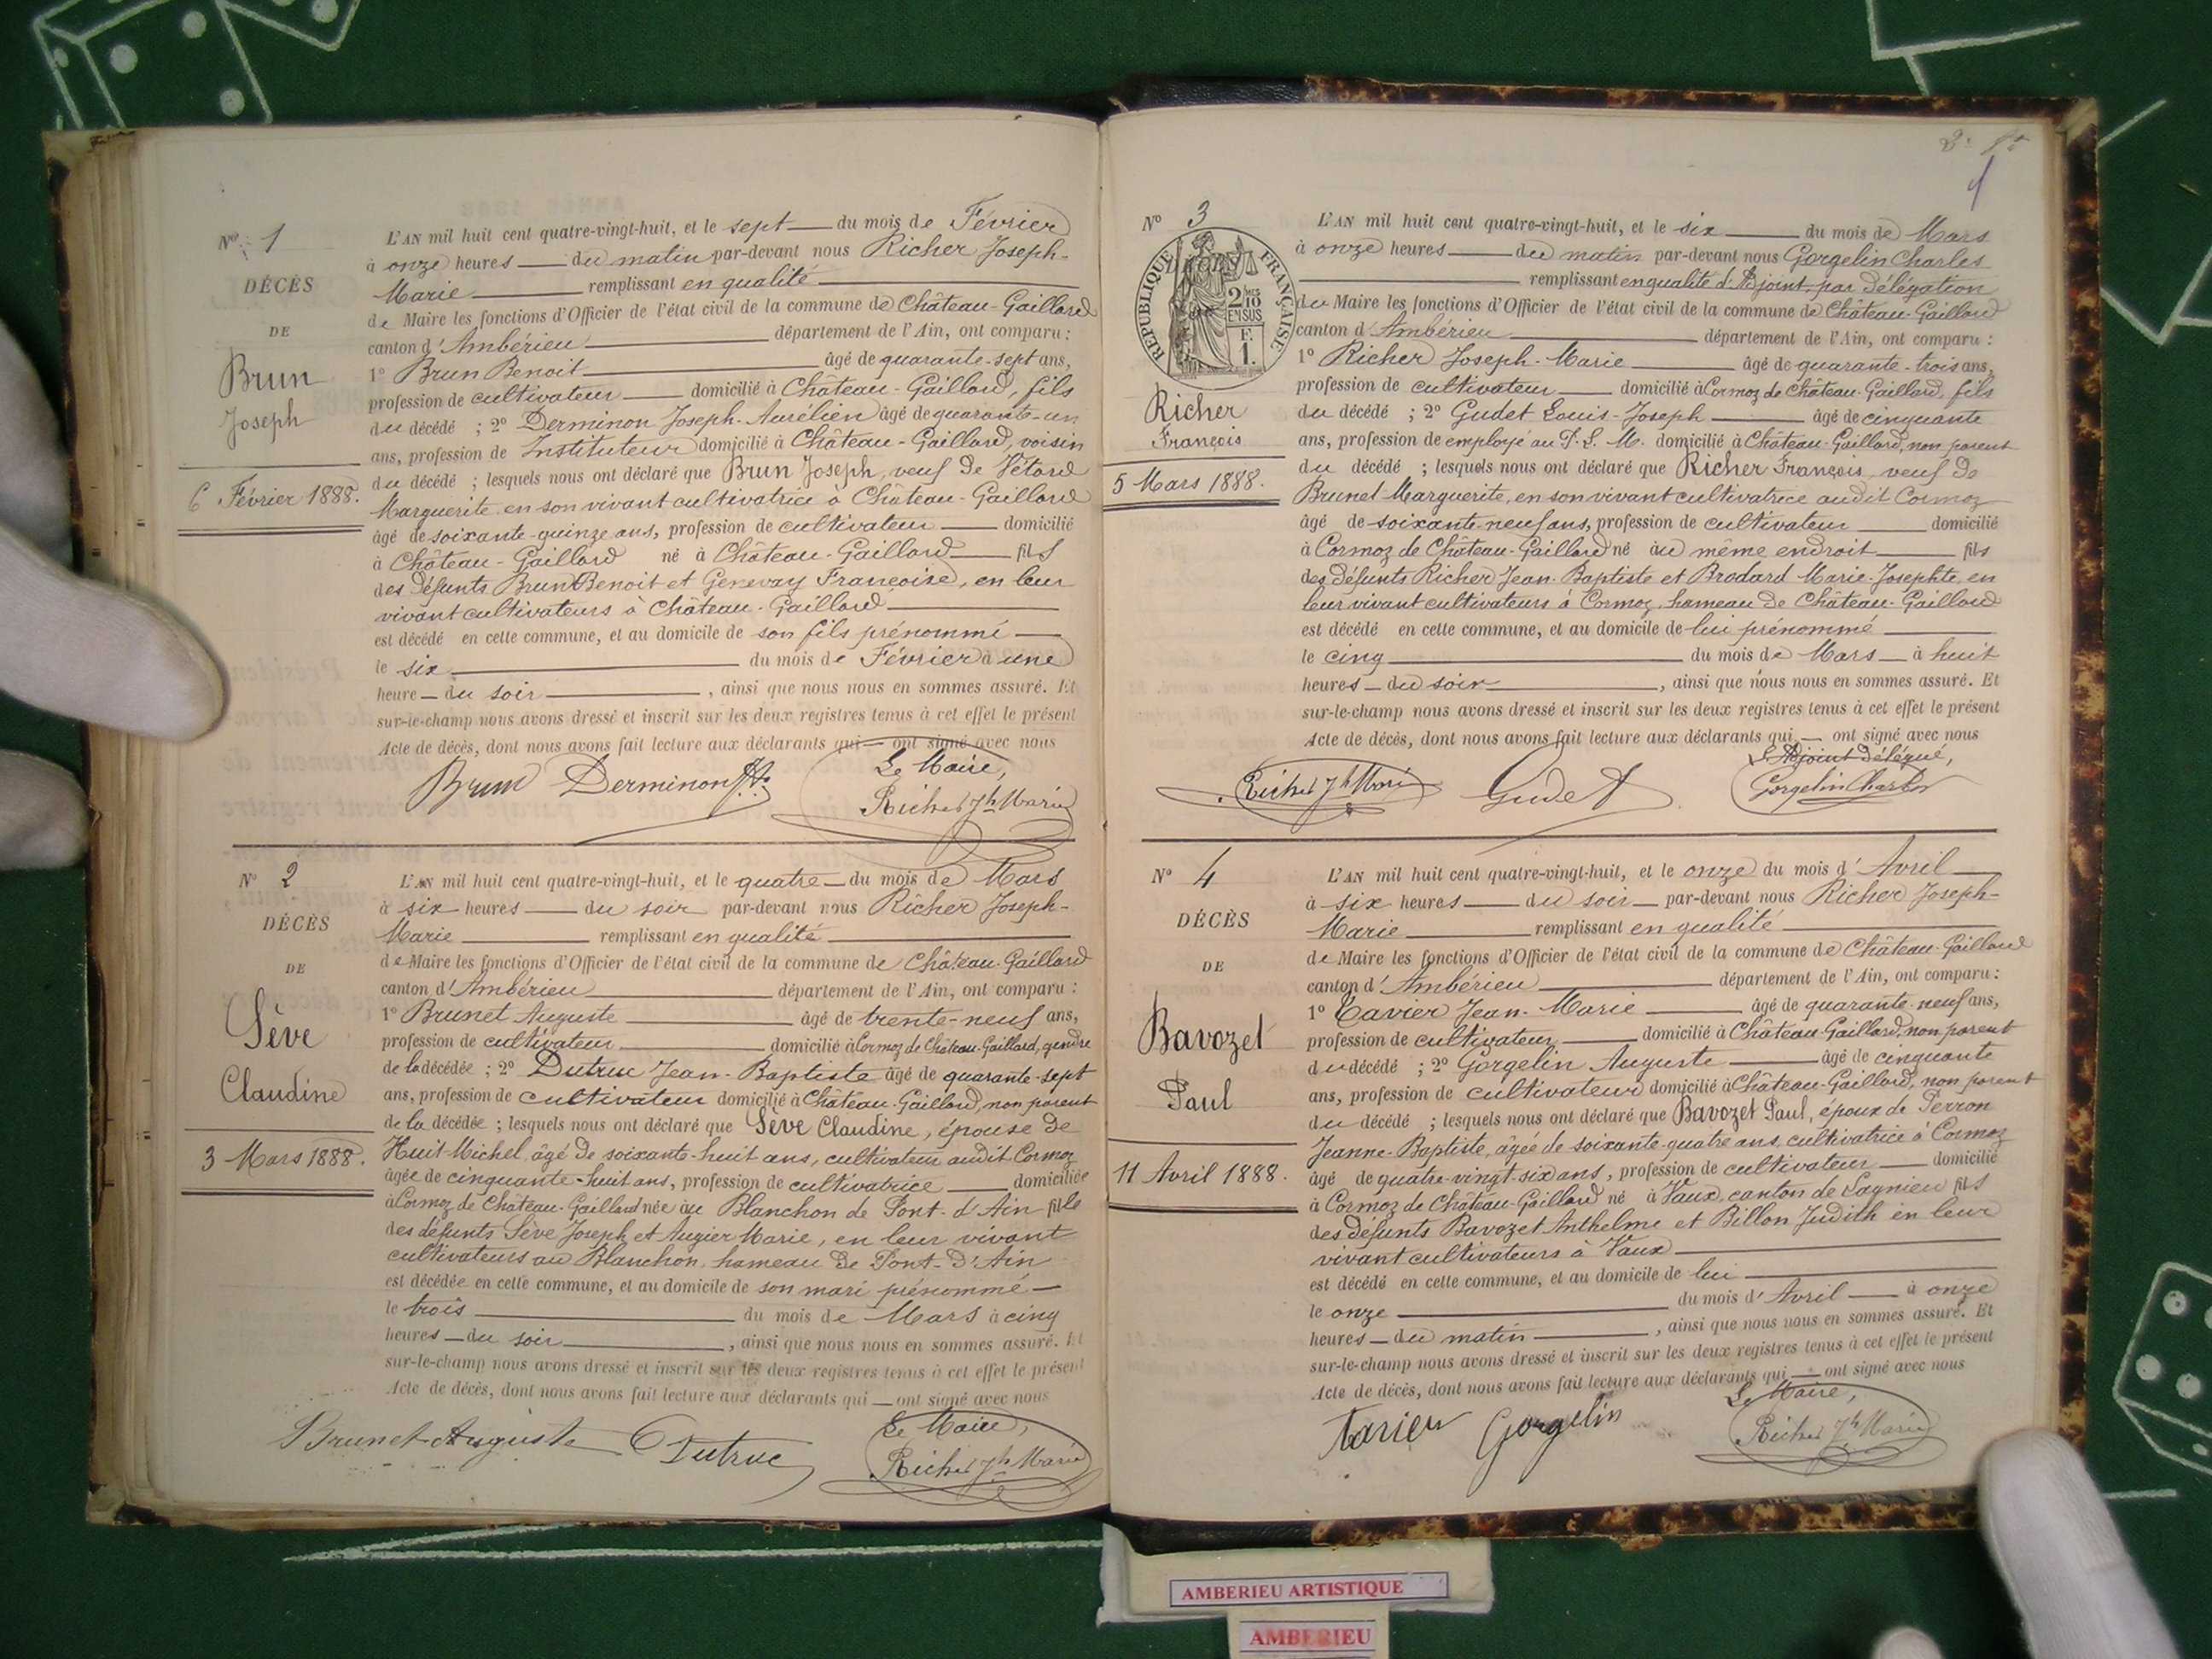 Nº 1
DÉCÈS
DE
Brun
Joseph
6 Février 1888.
L'AN mil huit cent quatre-vingt-huit, et le sept du mois de Février
à onze heures du matin par-devant nous Richer Joseph-
Marie remplissant en qualité
de Maire les fonctions d'Officier de l'état civil de la commune de Château-Gaillard
canton d'Ambérieu département de l'Ain, ont comparu :
1º Brun Benoit âgé de quarante-sept ans,
profession de cultivateur domicilié à Château-Gaillard, fils
du décédé ; 2º Derminon Joseph-Aurélien âgé de quarante-un
ans, profession de Instituteur domicilié à Château-Gaillard, voisin
du décédé ; lesquels nous ont déclaré que Brun Joseph, veuf de Vétard
Marguerite en son vivant cultivatrice à Château-Gaillard
âgé de soixante-quinze ans, profession de cultivateur domicilié
à Château-Gaillard né à Château-Gaillard fils
des défunts Brun Benoit et Genevay Françoise, en leur
vivant cultivateurs à Château-Gaillard
est décédé en cette commune, et au domicile de son fils prénommé
le six du mois de Février à une
heure du soir , ainsi que nous nous en sommes assuré. Et
sur-le-champ nous avons dressé et inscrit sur les deux registres tenus à cet effet le présent
Acte de décès, dont nous avons fait lecture aux déclarants qui ont signé avec nous
Brun Derminon Le Maire,
Richer Jh Marie
Nº 2
DÉCÈS
DE
Sève
Claudine
3 Mars 1888.
L'AN mil huit cent quatre-vingt-huit, et le quatre du mois de Mars
à six heures du soir par-devant nous Richer Joseph-
Marie remplissant en qualité
de Maire les fonctions d'Officier de l'état civil de la commune de Château-Gaillard
canton d'Ambérieu département de l'Ain, ont comparu :
1º Brunet Auguste âgé de trente-neuf ans,
profession de cultivateur domicilié à Cormoz de Château-Gaillard, gendre
de la décédée ; 2º Dutruc Jean-Baptiste âgé de quarante-sept
ans, profession de cultivateur domicilié à Château-Gaillard, non parent
de la décédée ; lesquels nous ont déclaré que Sève Claudine, épouse de
Huit Michel âgé de soixante-huit ans, cultivateur audit Cormoz
âgée de cinquante-huit ans, profession de cultivatrice domiciliée
à Cormoz de Château-Gaillard née au Blanchon de Pont-d'Ain fille
des défunts Sève Joseph et Augier Marie, en leur vivant
cultivateurs au Blanchon, hameau de Pont-d'Ain
est décédée en cette commune, et au domicile de son mari prénommé
le trois du mois de Mars à cinq
heures du soir , ainsi que nous nous en sommes assuré. Et
sur-le-champ nous avons dressé et inscrit sur les deux registres tenus à cet effet le présent
Acte de décès, dont nous avons fait lecture aux déclarants qui ont signé avec nous
Brunet Auguste Dutruc Le Maire,
Richer Jh Marie
Nº 3
RÉPUBLIQUE FRANÇAISE
2/10 EN SUS
F. 1.
Richer
François
5 Mars 1888.
L'AN mil huit cent quatre-vingt-huit, et le six du mois de Mars
à onze heures du matin par-devant nous Gorgelin Charles
remplissant en qualité d'Adjoint par délégation
du Maire les fonctions d'Officier de l'état civil de la commune de Château-Gaillard
canton d'Ambérieu département de l'Ain, ont comparu :
1º Richer Joseph-Marie âgé de quarante-trois ans,
profession de cultivateur domicilié à Cormoz de Château-Gaillard, fils
du décédé ; 2º Gudet Louis-Joseph âgé de cinquante
ans, profession de employé au P. L. M. domicilié à Château-Gaillard, non parent
du décédé ; lesquels nous ont déclaré que Richer François veuf de
Brunet Marguerite, en son vivant cultivatrice audit Cormoz
âgé de soixante-neuf ans, profession de cultivateur domicilié
à Cormoz de Château-Gaillard né au même endroit fils
des défunts Richer Jean-Baptiste et Brodard Marie-Josephte, en
leur vivant cultivateurs à Cormoz, hameau de Château-Gaillard
est décédé en cette commune, et au domicile de lui prénommé
le cinq du mois de Mars à huit
heures du soir , ainsi que nous nous en sommes assuré. Et
sur-le-champ nous avons dressé et inscrit sur les deux registres tenus à cet effet le présent
Acte de décès, dont nous avons fait lecture aux déclarants qui ont signé avec nous
L'Adjoint délégué,
Richer Jh Marie Gudet Gorgelin Charles
Nº 4
DÉCÈS
DE
Bavozet
Paul
11 Avril 1888.
L'AN mil huit cent quatre-vingt-huit, et le onze du mois d'Avril
à six heures du soir par-devant nous Richer Joseph-
Marie remplissant en qualité
de Maire les fonctions d'Officier de l'état civil de la commune de Château-Gaillard
canton d'Ambérieu département de l'Ain, ont comparu :
1º Tavier Jean-Marie âgé de quarante-neuf ans,
profession de cultivateur domicilié à Château-Gaillard, non parent
du décédé ; 2º Gorgelin Auguste âgé de cinquante
ans, profession de cultivateur domicilié à Château-Gaillard, non parent
du décédé ; lesquels nous ont déclaré que Bavozet Paul, époux de Perron
Jeanne-Baptiste, âgée de soixante-quatre ans, cultivatrice à Cormoz
âgé de quatre-vingt-six ans, profession de cultivateur domicilié
à Cormoz de Château-Gaillard né à Vaux, canton de Lagnieu fils
des défunts Bavozet Anthelme et Billon Judith en leur
vivant cultivateurs à Vaux
est décédé en cette commune, et au domicile de lui
le onze du mois d'Avril à onze
heures du matin , ainsi que nous nous en sommes assuré. Et
sur-le-champ nous avons dressé et inscrit sur les deux registres tenus à cet effet le présent
Acte de décès, dont nous avons fait lecture aux déclarants qui ont signé avec nous
Le Maire,
Tavier Gorgelin Richer Jh Marie
AMBERIEU ARTISTIQUE
AMBERIEU